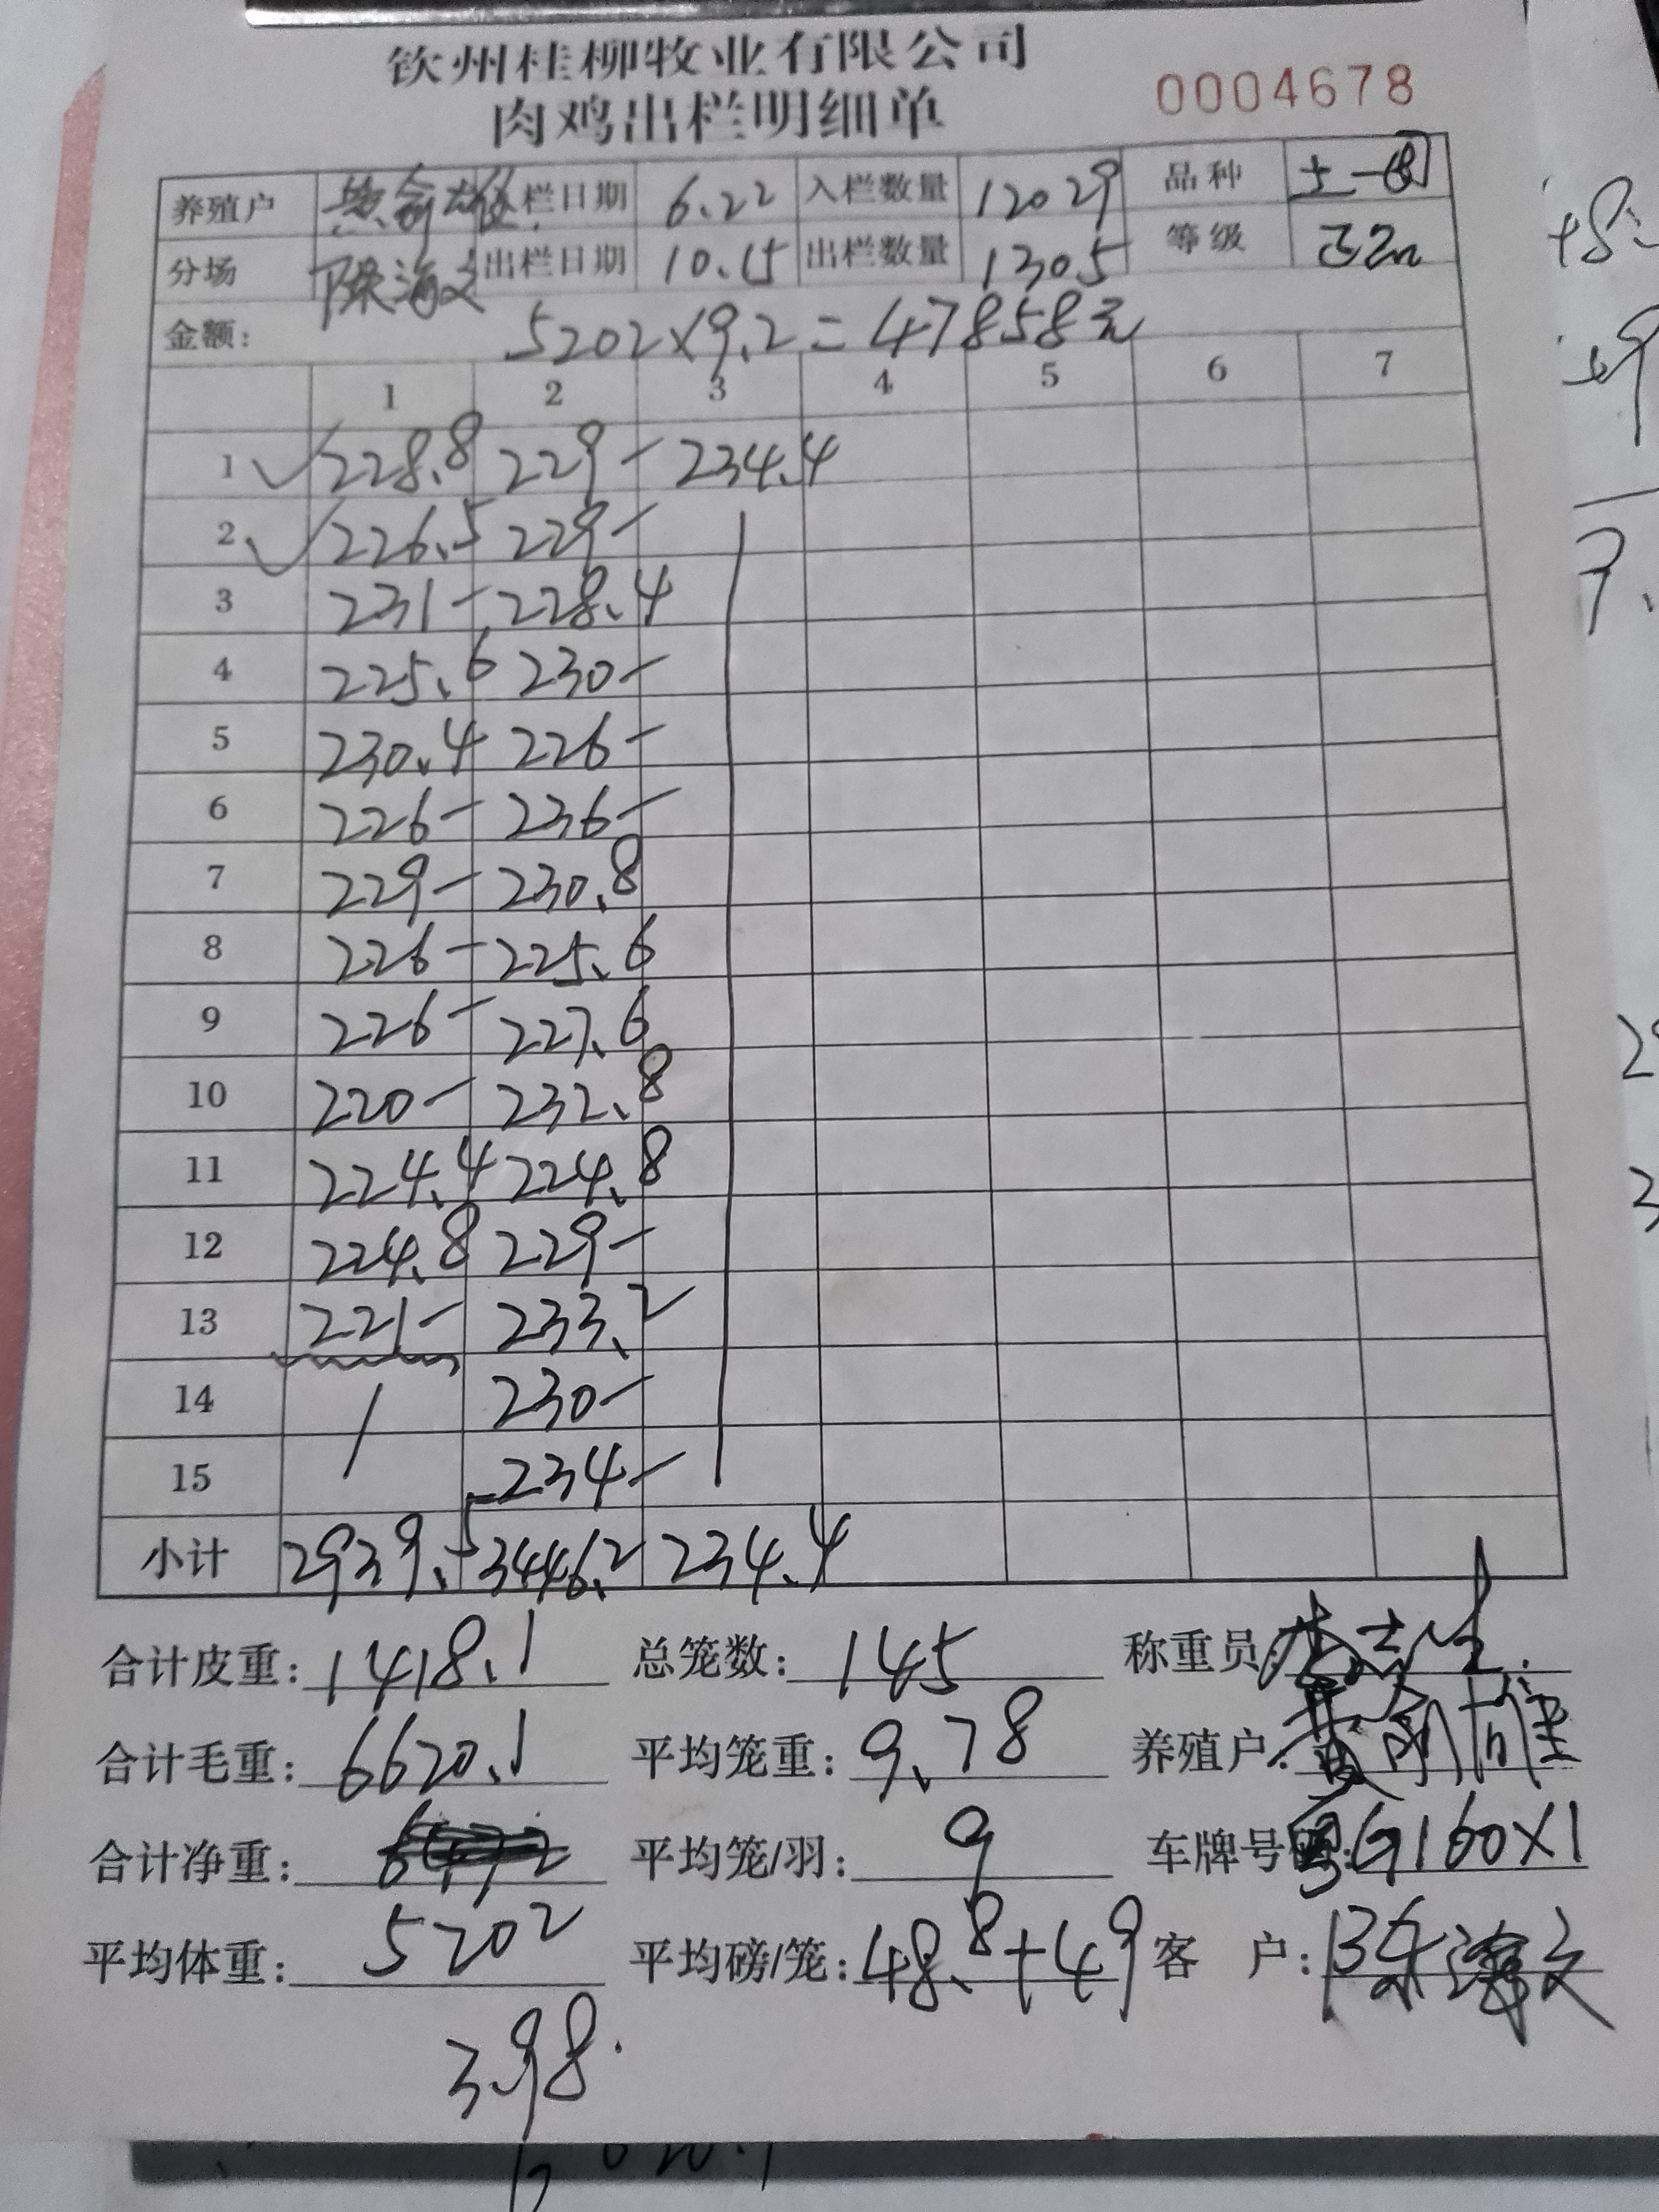 钦州桂柳牧业有限公司
肉鸡出栏明细单
0004678
养殖户 栏日期 6.22 入栏数量 12029 品种 土一
分场 陈海文 出栏日期 10.15 出栏数量 1305 等级
金额: 5202×9.2=47858元
1 2 3 4 5 6 7
1 228.8 229- 234.4
2 226.5 229-
3 231- 228.4
4 225.6 230-
5 230.4 226-
6 226- 236-
7 229- 230.8
8 226- 225.6
9 226- 227.6
10 220- 232.8
11 224.4 224.8
12 224.8 229-
13 221- 233.2
14 230-
15 234-
小计 2939.5 3446.2 234.4
合计皮重: 1418.1 总笼数: 145 称重员
合计毛重: 6620.1 平均笼重: 9.78 养殖户:
合计净重: 平均笼/羽: 9 车牌号 G160X1
平均体重: 5202 平均磅/笼: 48.8+49 客 户: 陈海文
3.98.